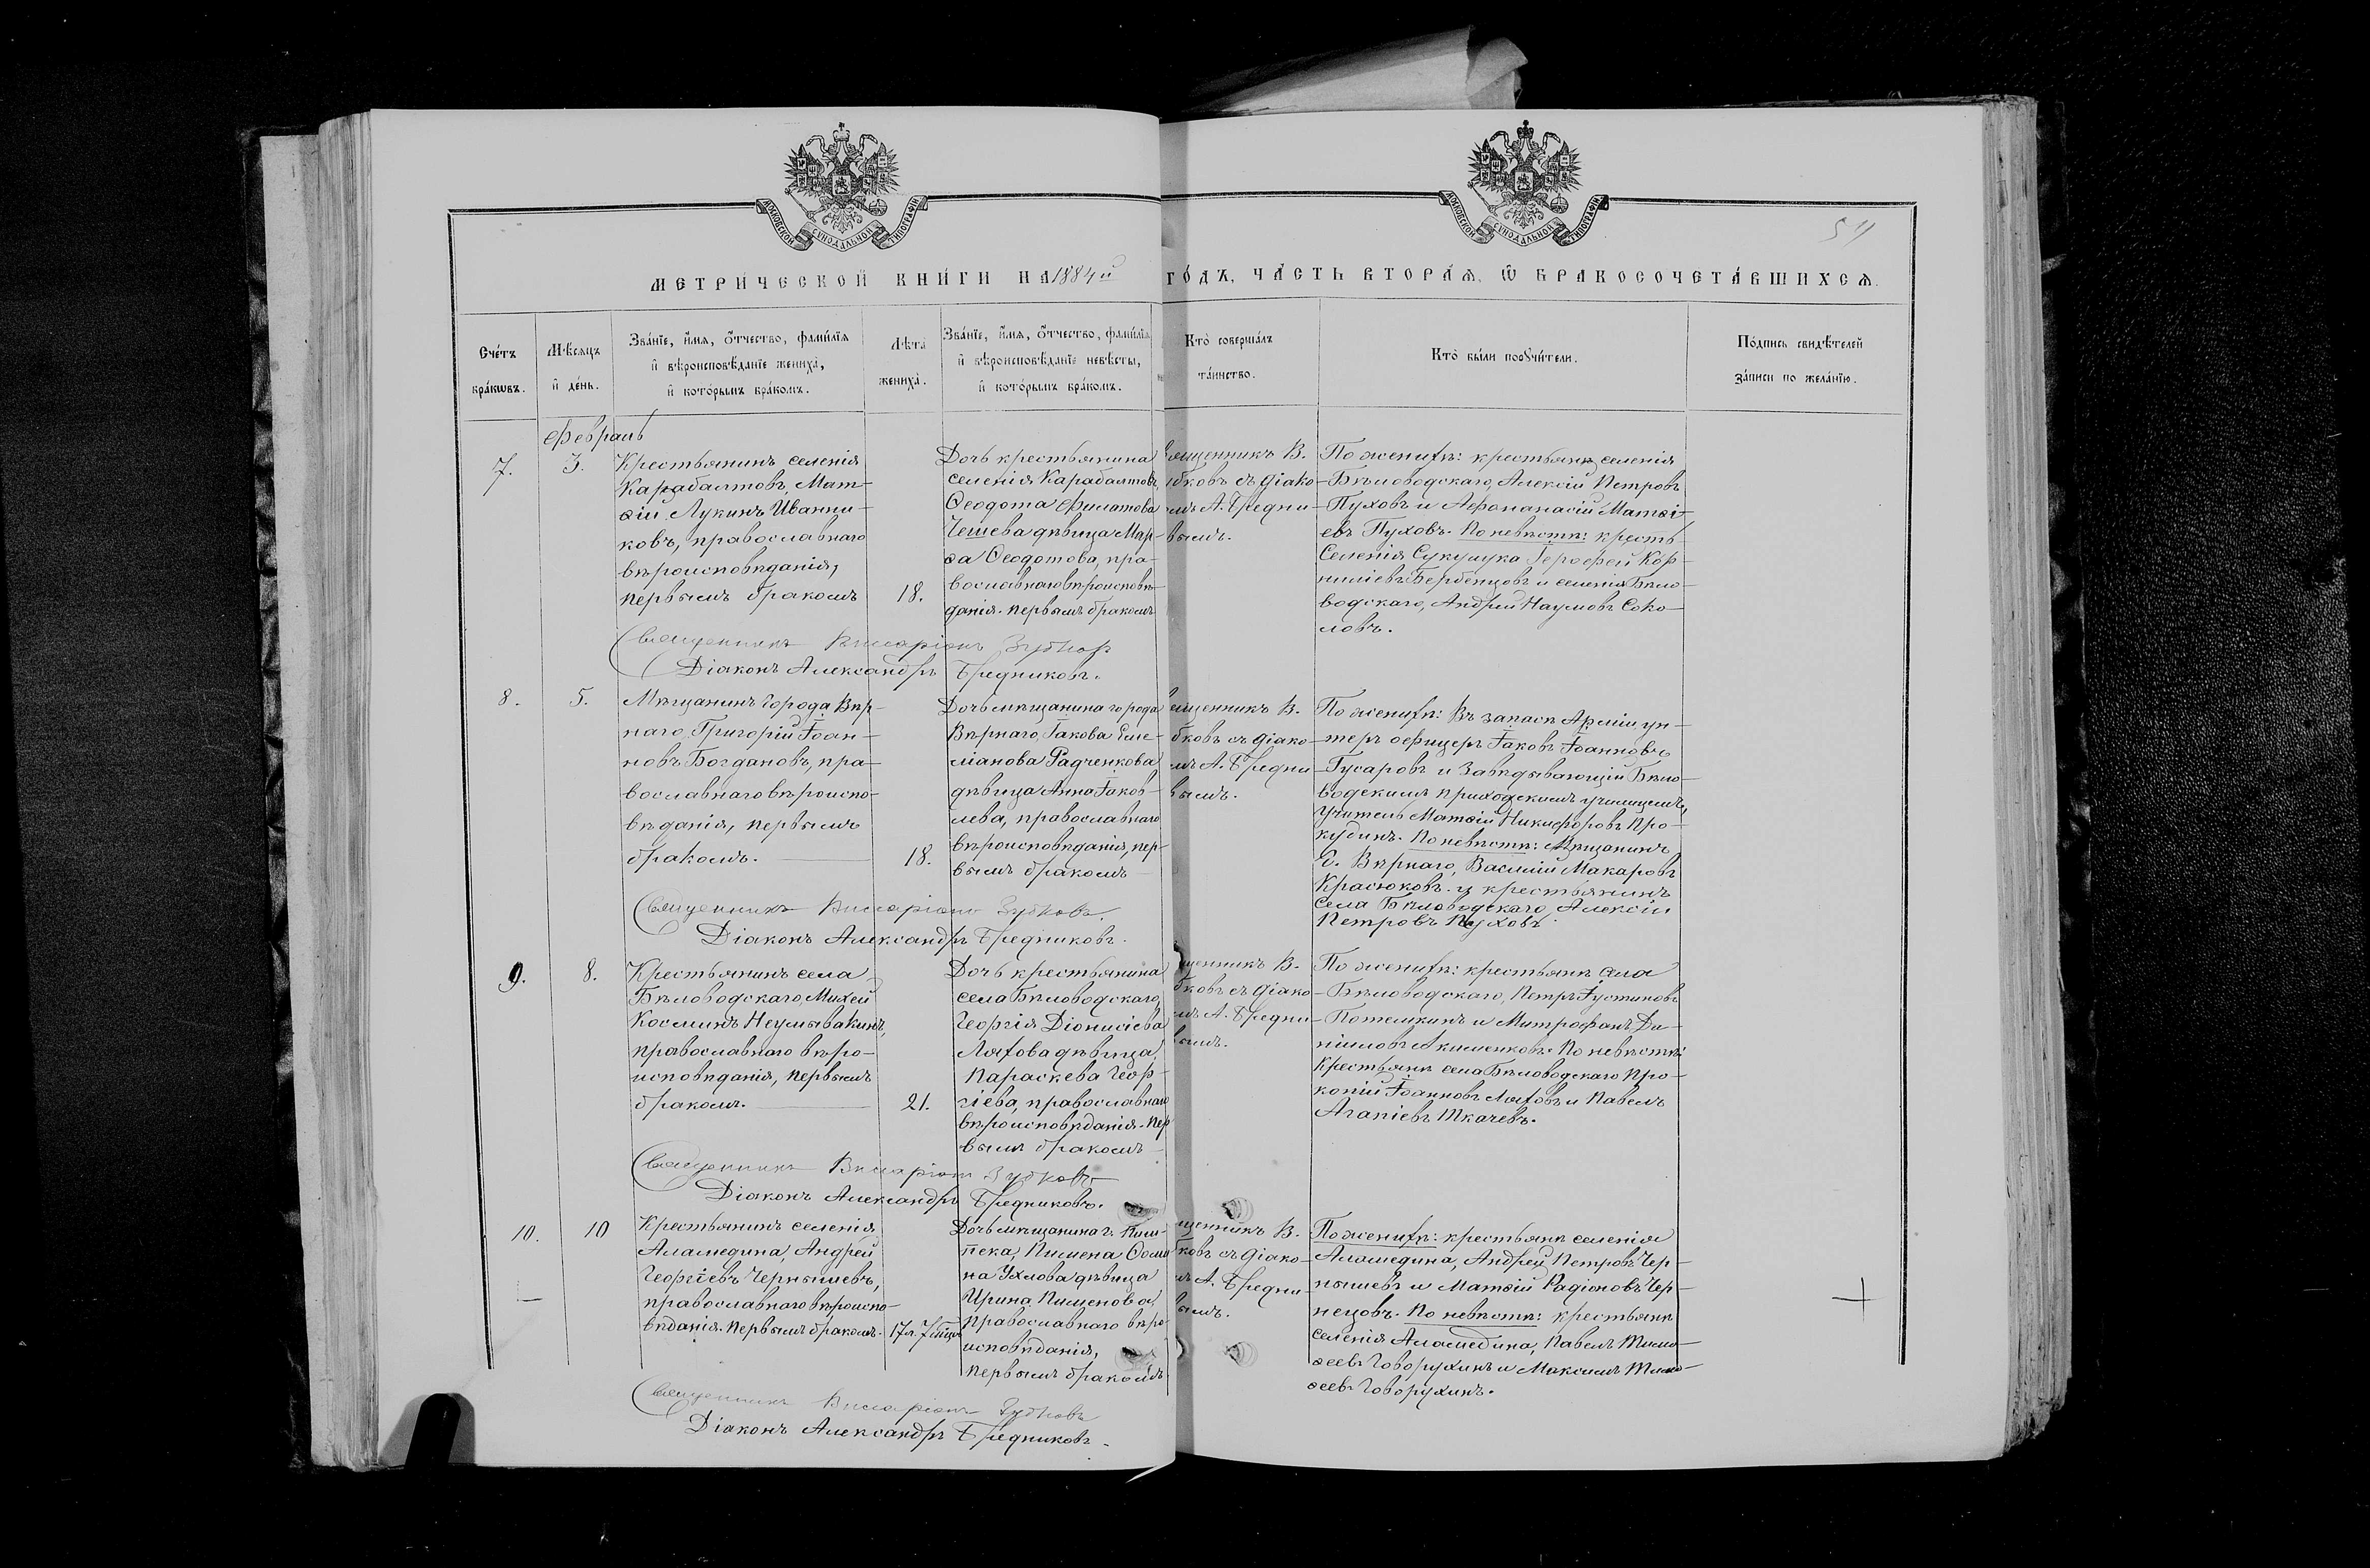 МОСКОВСКОЙ СѴНОДАЛЬНОЙ ТИПОГРАФІИ
МОСКОВСКОЙ СѴНОДАЛЬНОЙ ТИПОГРАФІИ
МЕТРИ́ЧЕСКОЙ КНИ́ГИ НА 1884й ГО́ДЪ, ЧА́СТЬ ВТОРА́Ѧ, Ѽ БРАКОСОЧЕТА́ВШИХСѦ.
Сче́тъ бра́кѡвъ.
Мѣ́сѧцъ и҆ де́нь.
Зва́нїе, и҆́мѧ, ѻ҆́тчество, фами́лїѧ
и҆ вѣроисповѣ́данїе жениха̀,
и҆ кото́рымъ бра́комъ.
Лѣта̀ жениха̀.
Зва́нїе, и҆́мѧ, ѻ҆́тчество, фами́лїѧ
и҆ вѣроисповѣ́данїе невѣ́сты,
и҆ кото́рымъ бра́комъ.
Кто̀ соверша́лъ
та́инство.
Кто̀ бы́ли порꙋчи́тели.
По́дпись свидѣ́телей
за́писи по жела́нїю.
Февраль
7.
3.
Крестьянинъ селенія
Карабалтовъ, Мат-
ѳій Лукинъ Иванни-
ковъ, православнаго
вѣроисповѣданія,
первымъ бракомъ
18.
Дочь крестьянина
селенія Карабалтовъ,
Ѳеодота Филатова
Чешева дѣвица Мар-
ѳа Ѳеодотова, пра-
вославнаго вѣроисповѣ-
данія. первымъ бракомъ
ященникъ В.
бковъ съ діако-
мъ А. Бредни-
вымъ.
По женихѣ: крестьянѣ селенія
Бѣловодскаго, Алексій Петровъ
Пуховъ и Афонанасій Матѳі-
евъ Пуховъ. По невѣстѣ: кресть
Селенія Сукулука Герофей Кор-
ниліевъ Бербенцовъ и селенія Бѣло-
водскаго, Андрей Наумовъ Соко-
ловъ.
Священникъ Виссаріонъ Зубков
Діаконъ Александръ Бредниковъ.
8.
5.
Мѣщанинъ города Вѣр-
наго, Григорій Іоан-
новъ Богдановъ, пра-
вославнаго вѣроиспо-
вѣданія, первымъ
бракомъ.
18.
Дочь мѣщанина города
Вѣрнаго, Іакова Еме-
ліанова Радченкова
дѣвица Анна Іаков-
лева, православнаго
вѣроисповѣданія, пер-
вымъ бракомъ
ященникъ В.
бковъ съ діако-
мъ А. Бредни-
вымъ.
По женихѣ: Въ запасѣ Арміи ун-
теръ офицеръ Іаковъ Іоанновъ
Гусаровъ и Завѣдывающій Бѣло-
водскимъ приходскимъ училищемъ,
Учитель Матѳій Никифоровъ Про-
кудинъ. По невѣстѣ: Мѣщанинъ
г. Вѣрнаго, Василій Макаровъ
Красюковъ. и крестьянинъ
села Бѣловодскаго, Алексій
Петровъ Пуховъ
Священникъ Виссаріонъ Зубковъ.
Діаконъ Александръ Бредниковъ.
9.
8.
Крестьянинъ села
Бѣловодскаго, Михей
Косминъ Неумывакинъ,
православнаго вѣро-
исповѣданія, первымъ
бракомъ.
21.
Дочь крестьянина
села Бѣловодскаго,
Георгія Діонисіева
Ляхова дѣвица
Параскева Геор-
гіева, православнаго
вѣроисповѣданія. пер
вымъ бракомъ
щенникъ В.
бковъ съ діако-
мъ А. Бредни-
вымъ.
По женихѣ: крестьянѣ села
Бѣловодскаго, Петръ Іустиновъ
Потемкинъ и Митрофанъ Да-
ніиловъ Акименковъ. По невѣстѣ:
Крестьянѣ села Бѣловодскаго Про-
копій Іоанновъ Ляховъ и Павелъ
Агапіевъ Ткачевъ.
Священникъ Виссаріонъ Зубковъ
Діаконъ Александръ Бредниковъ.
10.
10
Крестьянинъ селенія
Аламедина, Андрей
Георгіевъ Чернышевъ,
православнаго вѣроиспо-
вѣданія. первымъ бракомъ.
17 л. 7 мѣс.
Дочь мѣщанина г. Пиш-
пека, Пимена Ѳоми
на Ухлова дѣвица
Ирина Пименова,
православнаго вѣро-
исповѣданія,
первымъ бракомъ
щенникъ В.
ковъ съ діако-
мъ А. Бредни-
вымъ.
По женихѣ: крестьянѣ селенія
Аламедина, Андрей Петровъ Чер-
нышевъ и Матѳій Радіоновъ Чер-
нецовъ. По невѣстѣ: крестьянѣ
селенія Аламедина, Павелъ Тимо-
ѳеевъ Говорухинъ и Максимъ Тимо-
ѳеевъ Говорухинъ.
Священникъ Виссаріонъ Зубковъ
Діаконъ Александръ Бредниковъ.